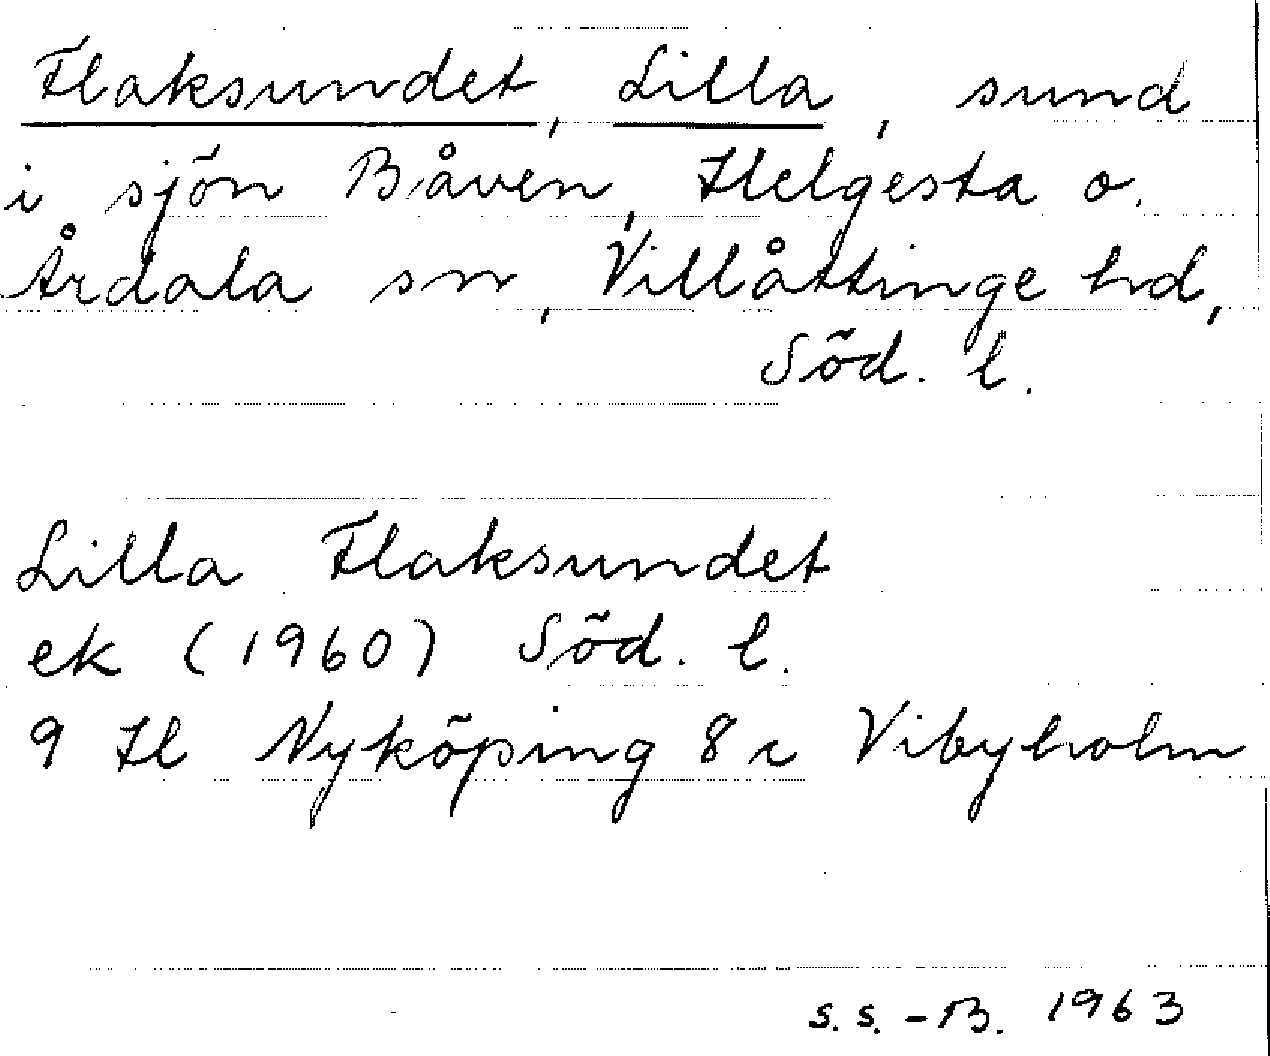 Flaksundet, Lilla, sund
i sjön Båven, Helgesta o.
Årdala sn, Villåttinge hd,
Söd. l.
Lilla Flaksundet
ek (1960) Söd. l.
9 H Nyköping 8 c Vibyholm
s.s. - B. 1963